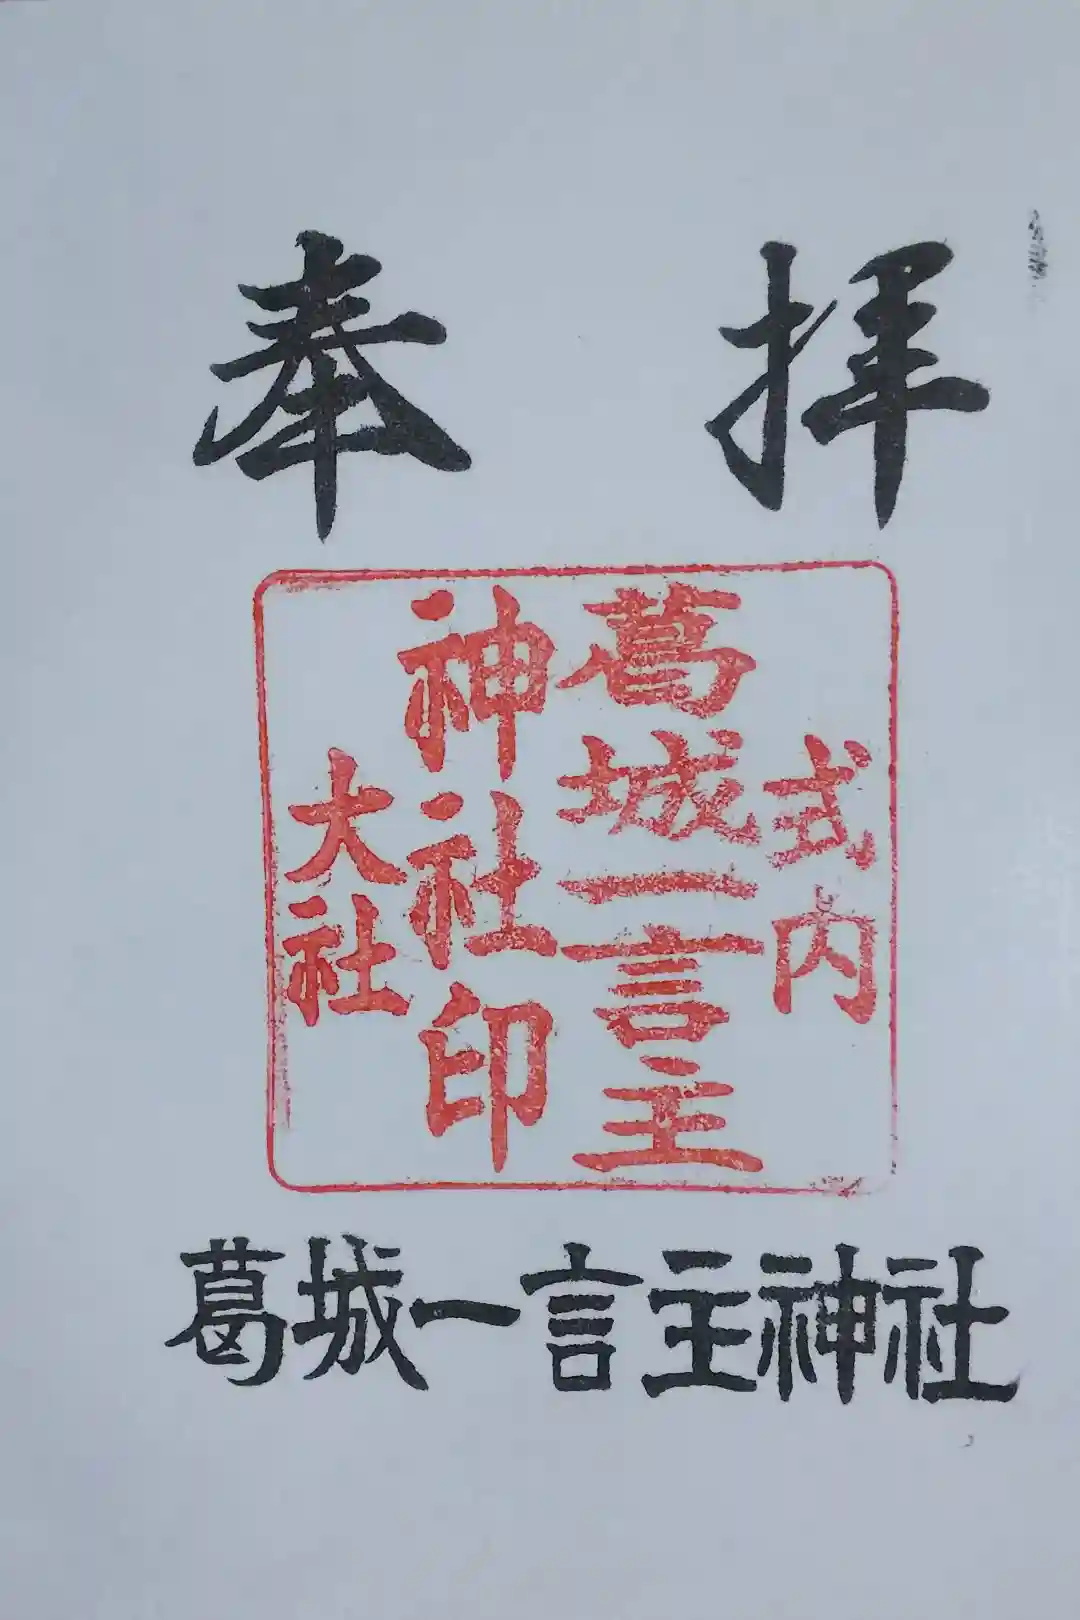 奉 拝
式内
葛城一言主
神社印
大社
葛城一言主神社